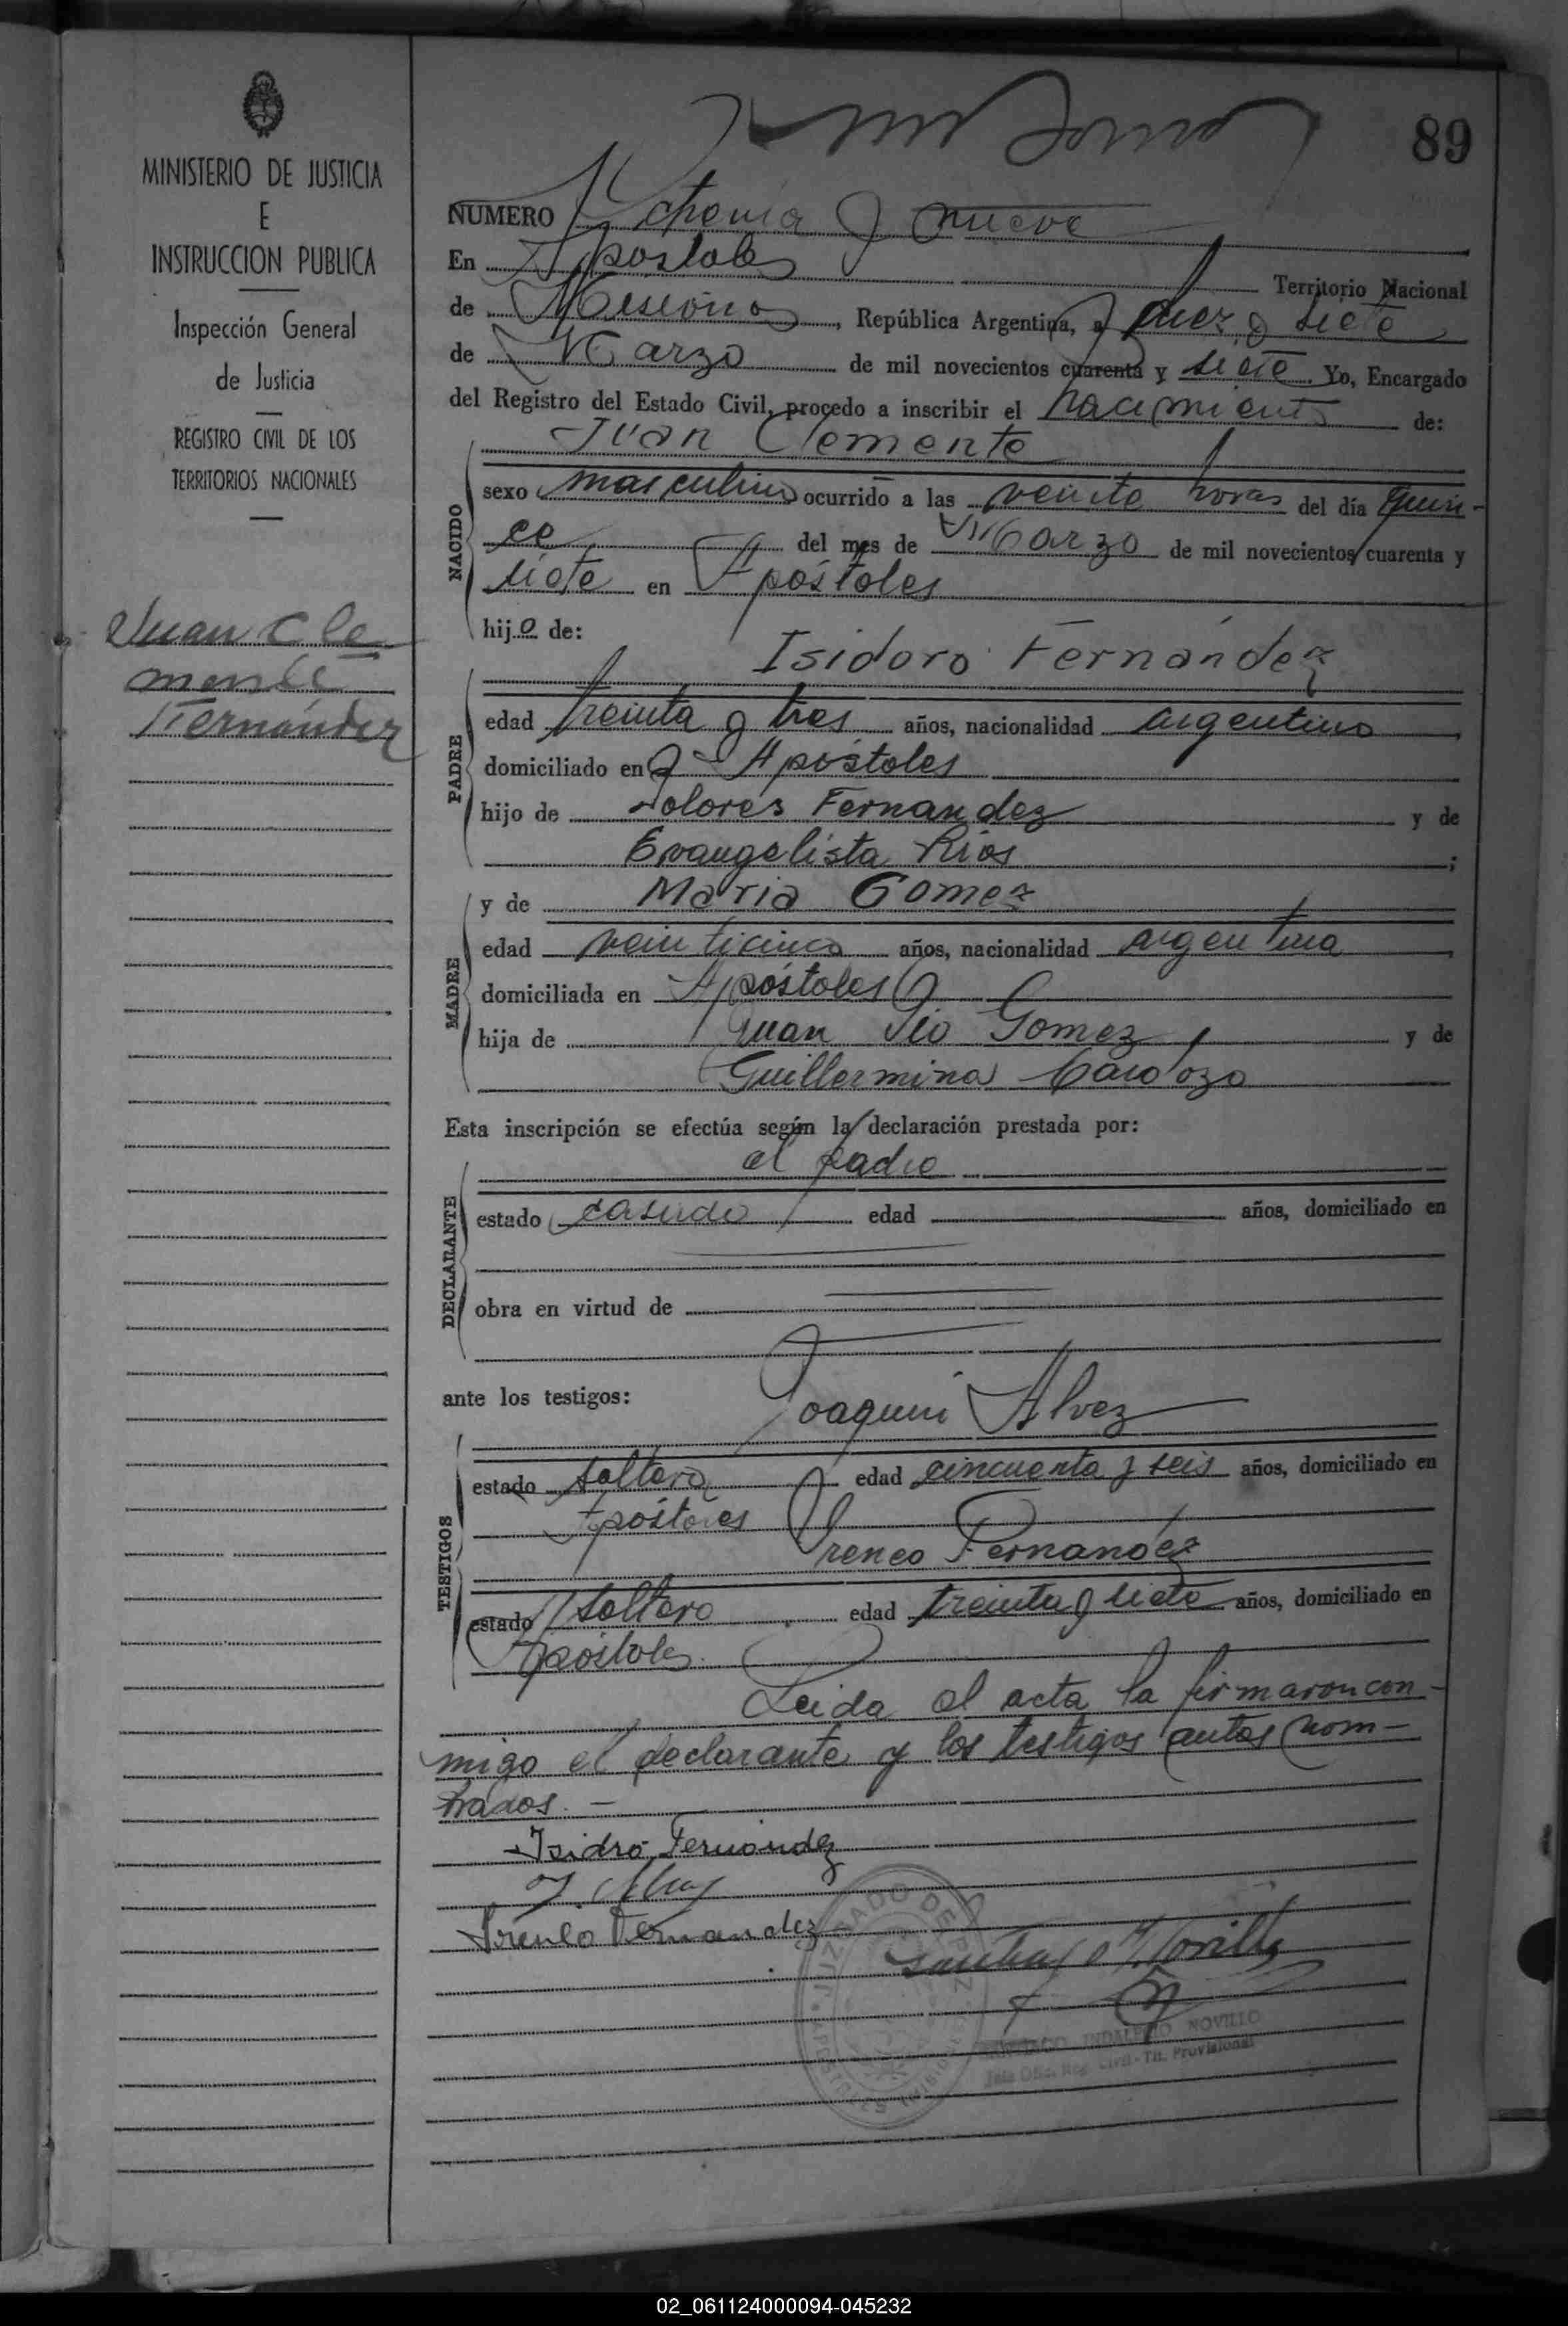 89
MINISTERIO DE JUSTICIA
E
INSTRUCCION PUBLICA
Inspección General
de Justicia
REGISTRO CIVIL DE LOS
TERRITORIOS NACIONALES
Juan Cle
mente
Fernández
NUMERO Ochenta y nueve
En Apóstoles Territorio Nacional
de Misiones, República Argentina, a diez y siete
de Marzo de mil novecientos cuarenta y siete Yo, Encargado
del Registro del Estado Civil, procedo a inscribir el nacimiento de:
Juan Clemente
NACIDO
sexo masculino ocurrido a las veinte horas del día quin-
ce del mes de Marzo de mil novecientos cuarenta y
siete en Apóstoles
hijo de:
Isidoro Fernández
PADRE
edad treinta y tres años, nacionalidad argentino
domiciliado en Apóstoles
hijo de Dolores Fernandez y de
Evangelista Rios;
y de Maria Gomez
MADRE
edad veinticinco años, nacionalidad argentina
domiciliada en Apóstoles
hija de Juan Pio Gomez y de
Guillermina Cardozo
Esta inscripción se efectúa según la declaración prestada por:
el padre
DECLARANTE
estado casado edad años, domiciliado en
obra en virtud de
ante los testigos:
Joaquin Alvez
TESTIGOS
estado soltero edad cincuenta y seis años, domiciliado en
Apóstoles
Ireneo Fernandez
estado soltero edad treinta y siete años, domiciliado en
Apóstoles.
Leida el acta la firmaron con-
migo el declarante y los testigos antes nom-
brados. —
Isidro Fernández
J. Alvez
Ireneo Fernandez
JUZGADO DE PAZ
SANTIAGO INDALECIO NOVILLO
Jefe Ofic. Reg. Civil - Tit. Provisional
02_061124000094-045232